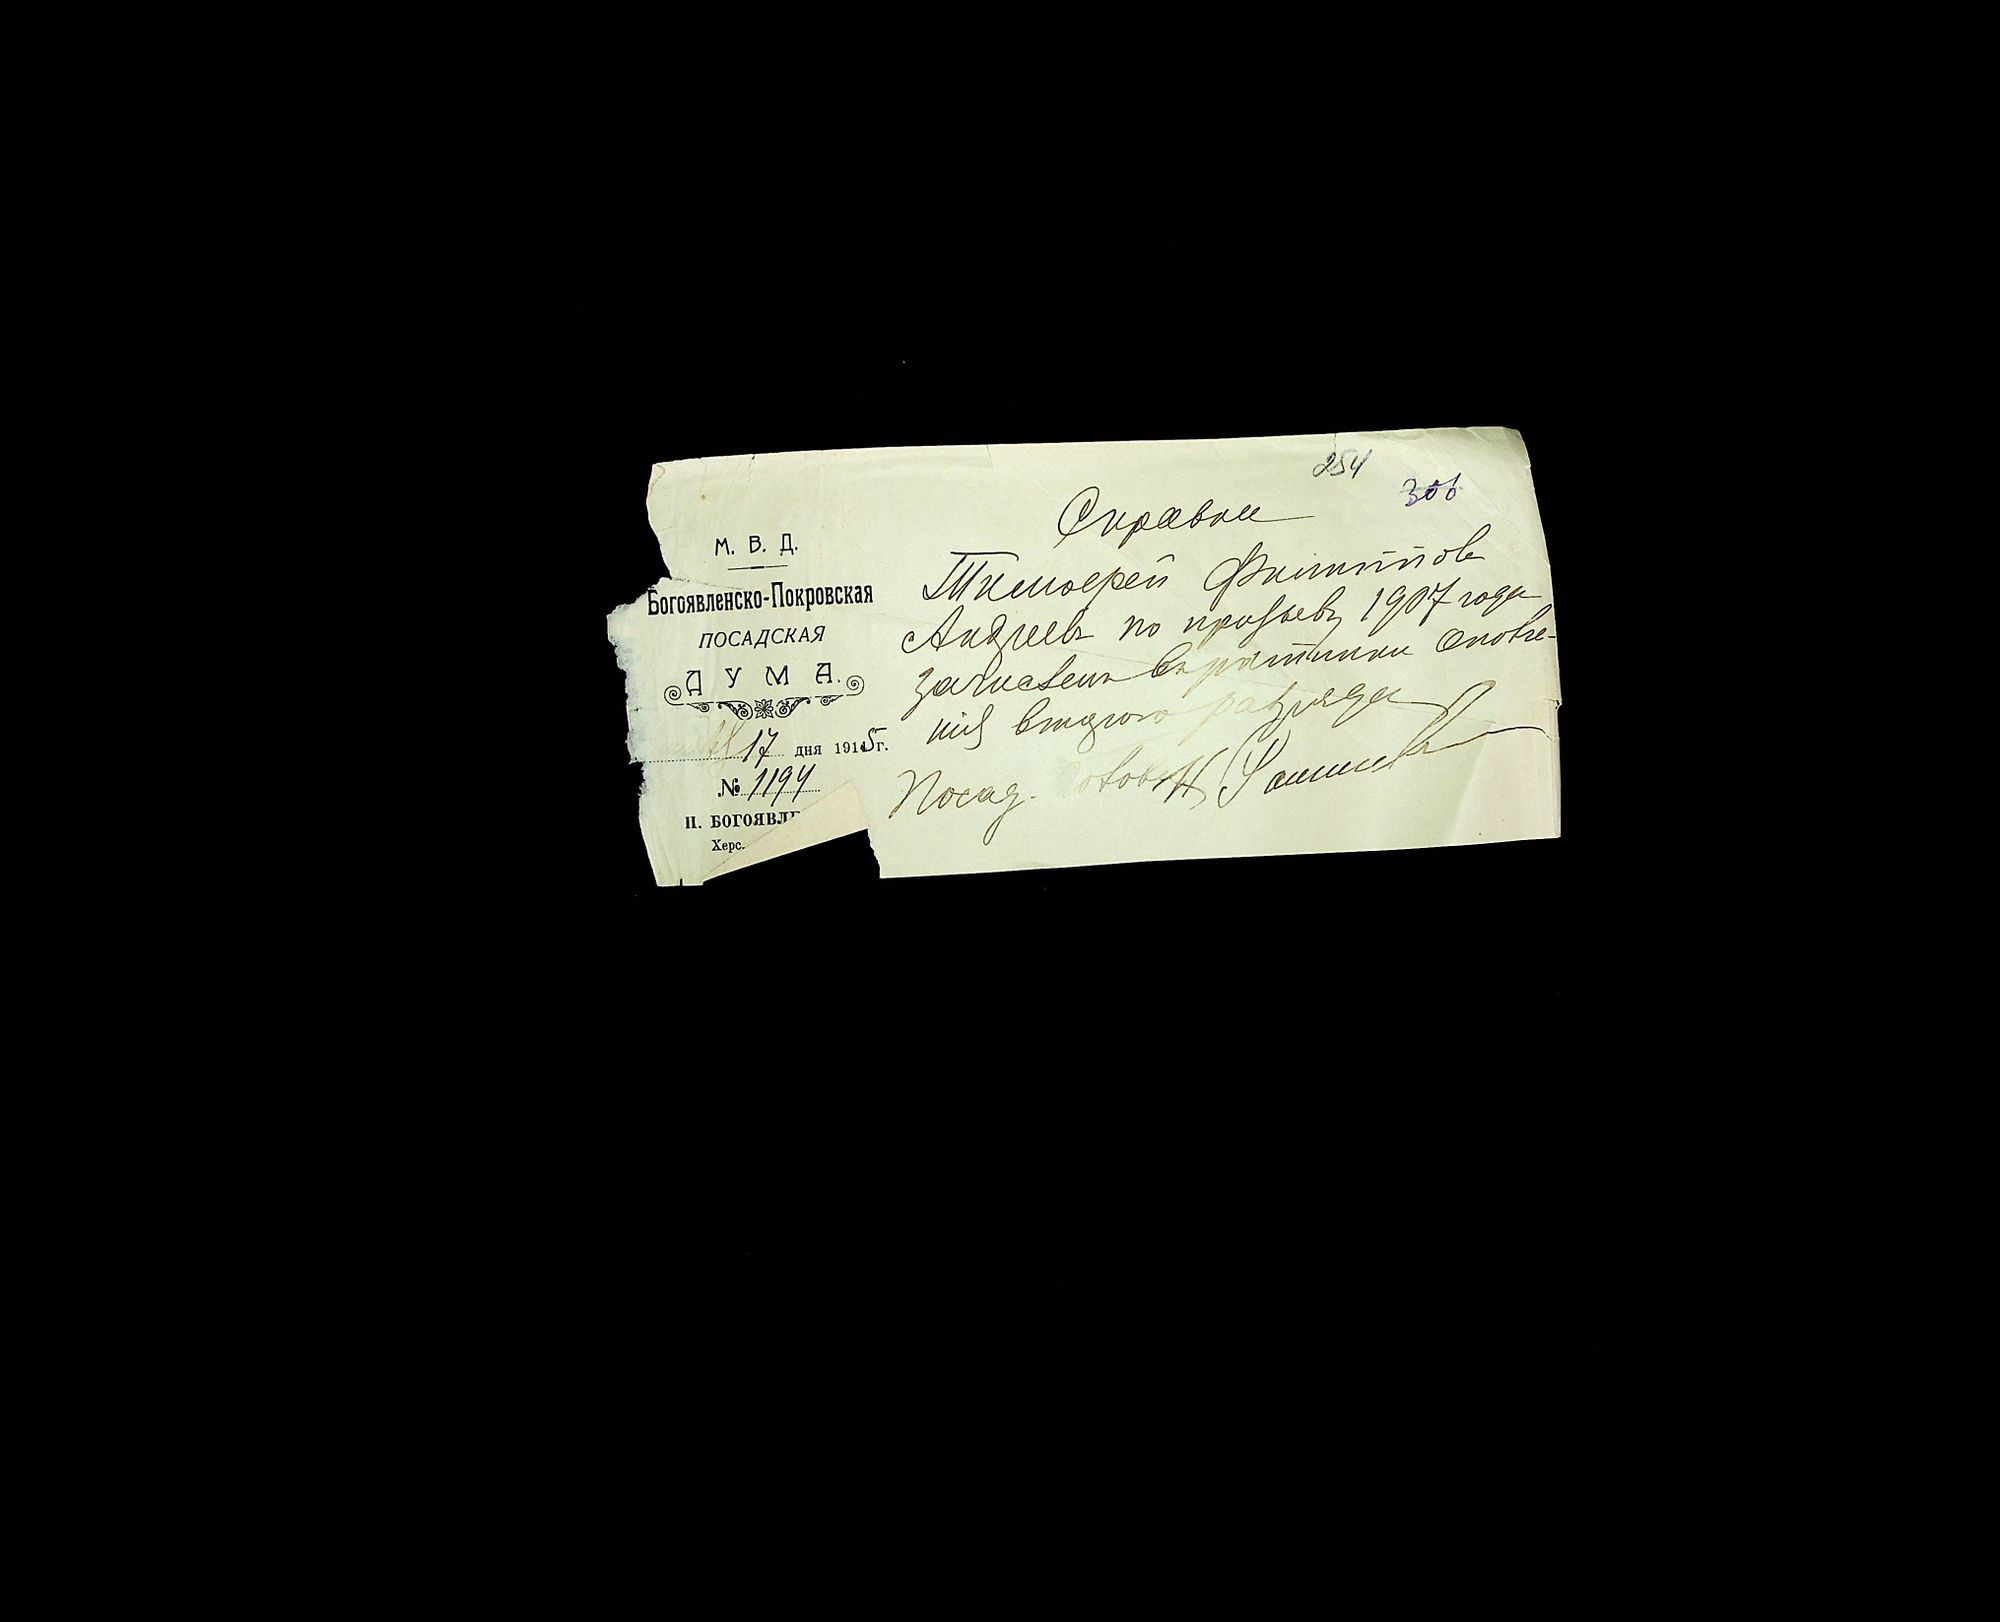 254
306
М. В. Д.
Богоявленско-Покровская
ПОСАДСКАЯ
ДУМА.
17 дня 1915 г.
№ 1194
П. БОГОЯВЛЕ
Херс.
Справка
Тимофей Филиппов
Андреев по призыву 1907 года
зачислен в ратники ополче-
ния второго разряда
Посад. Голова